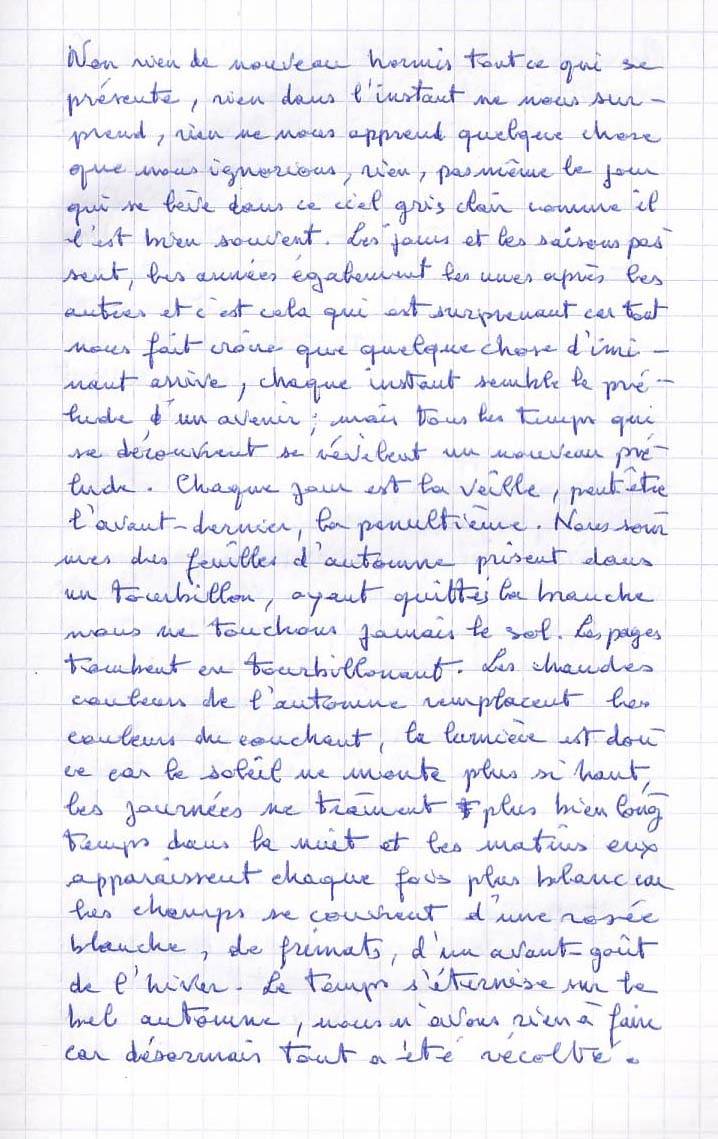 Non rien de nouveau hormis tout ce qui se
présente, rien dans l'instant ne nous sur-
prend, rien ne nous apprend quelque chose
que nous ignorions, rien, pas même le jour
qui se lève dans ce ciel gris clair comme il
l'est bien souvent. Les jours et les saisons pas
sent, les années également les unes après les
autres et c'est cela qui est surprenant car tout
nous fait croire que quelque chose d'imi-
nant arrive, chaque instant semble le pré-
lude d'un avenir; mais tous les temps qui
se découvrent se révèlent un nouveau pré-
lude. Chaque jour est la veille, peut-être
l'avant-dernier, la penultième. Nous som
mes des feuilles d'automne prisent dans
un tourbillon, ayant quittés la branche
nous ne touchons jamais le sol. Les pages
tombent en tourbillonant. Les chaudes
couleurs de l'automne remplacent les
couleurs du couchant, la lumière est dou
ce car le soleil ne monte plus si haut,
les journées ne traînent plus bien long
temps dans la nuit et les matins eux
apparaissent chaque fois plus blanc car
les champs se couvrent d'une rosée
blanche, de frimats, d'un avant-goût
de l'hiver. Le temps s'éternise sur le
bel automne, nous n'avons rien à faire
car désormais tout a été récolté.